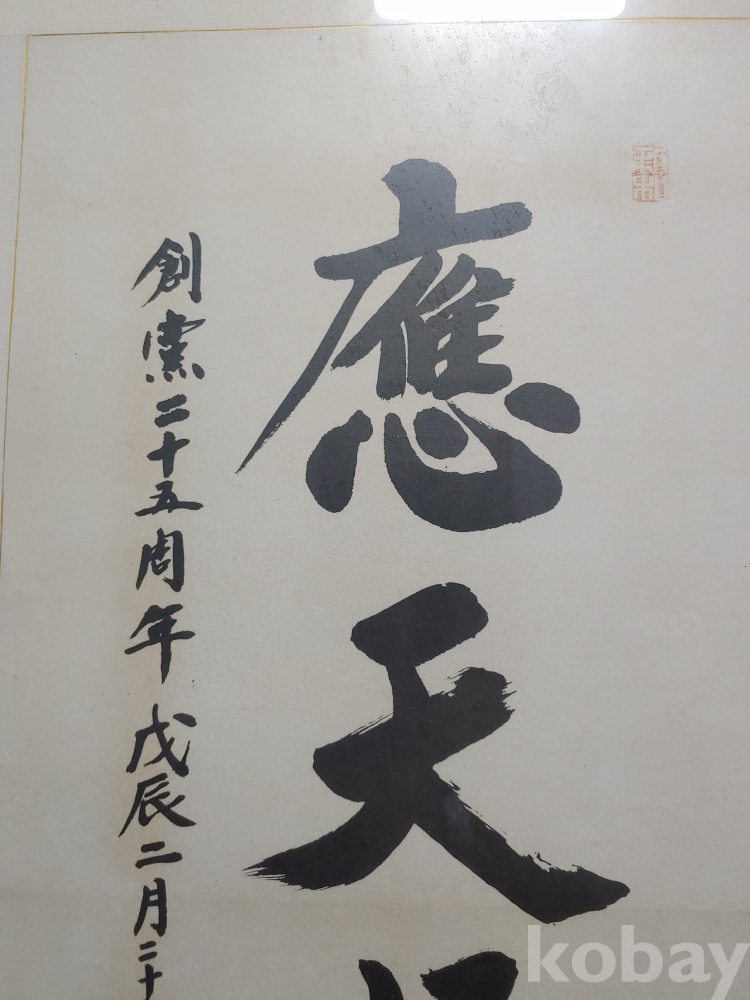 應天
創黨二十五周年 戊辰二月二十
kobay